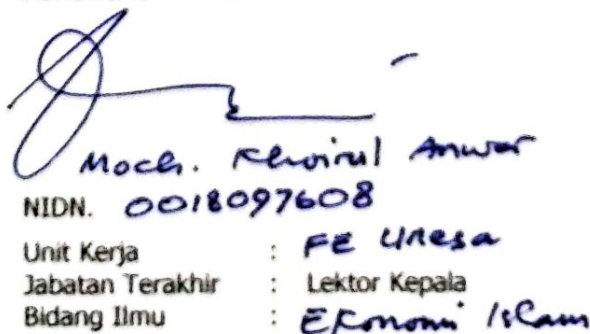 Moch. Khoirul Anwar
NIDN. 0018097608
Unit Kerja : FE Unesa
Jabatan Terakhir : Lektor Kepala
Bidang Ilmu : Ekonomi Islam